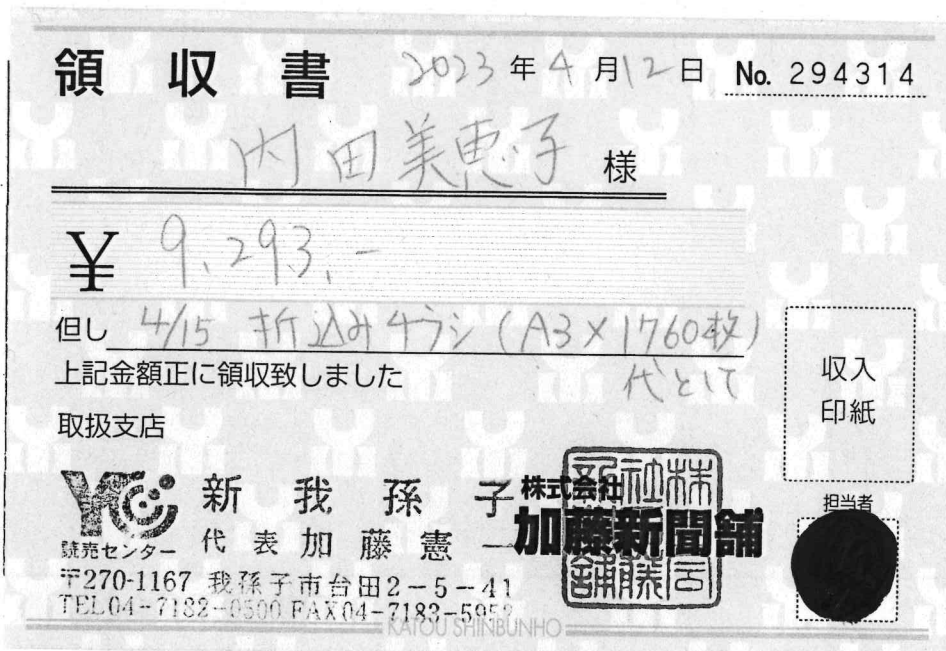 領収書 2023年4月12日 No. 294314
内田美恵子 様
¥ 9,293,-
但し 4/15 折込みチラシ(A3×1760枚)
代として
上記金額正に領収致しました
収入
印紙
取扱支店
担当者
YC 新我孫子 株式会社
読売センター 代表 加藤憲一 加藤新聞舗
〒270-1167 我孫子市台田2-5-41
TEL04-7182-0500 FAX04-7183-5952
KATOU SHINBUNHO